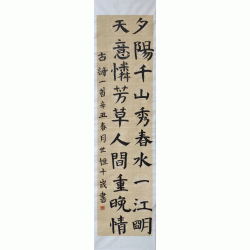 夕陽千山秀春水一江明
天意憐芳草人間重晚情
古詩一首辛丑春月世恒十歲書